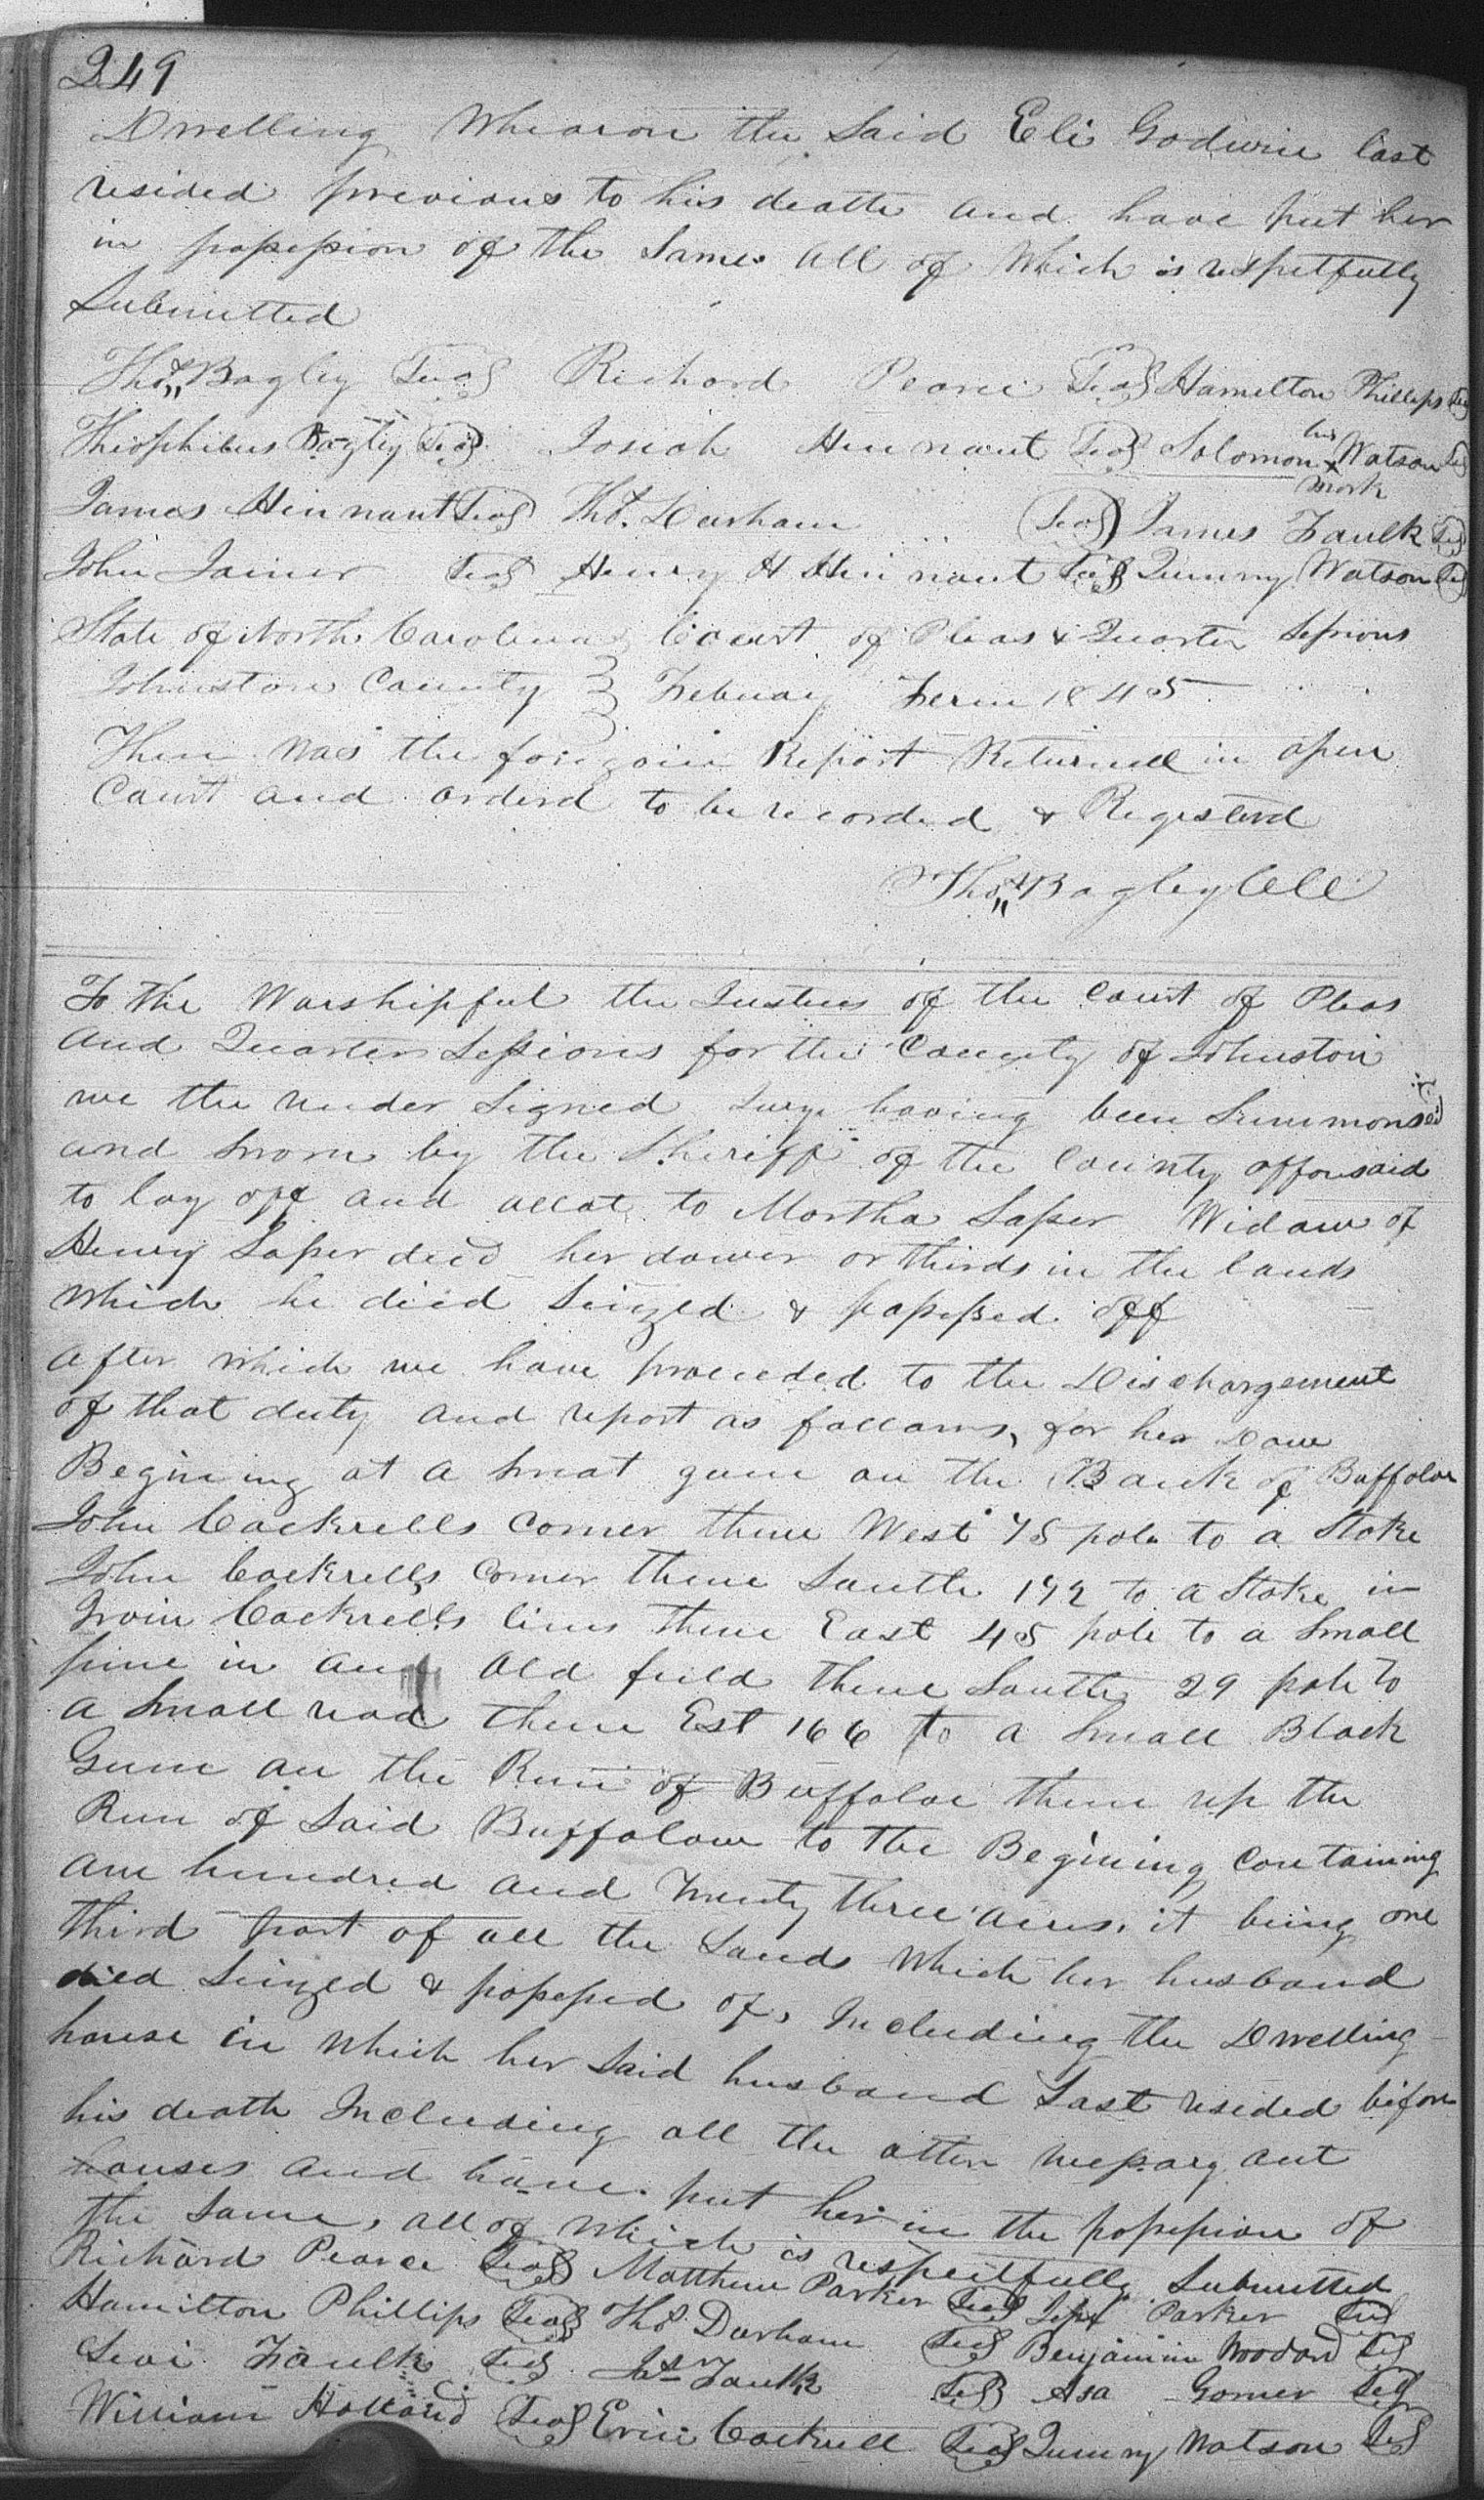 249
Dwelling Whearon the Said Eli Godwin last
resided previous to his death and have put her
in possession of the Same all of Which is respetfully
Submitted
Thos Bagley Seal Richard Pearce Seal Hamilton Phillips Seal
Theophilus Bagley Seal Josiah Hinnant Seal Solomon his x mark Watson Seal
James Hinnant Seal Thos. Durham Seal James Faulk Seal
John Joiner Seal Henry H Hinnant Seal Quinny Watson Seal
State of North Carolina Court of Pleas & Quarter Sessions
Johnston County Febuay Term 1845
Then was the foregoin Report Returned in open
Court and orderd to be recorded & Registerd
Thos Bagley Clk
To the Worshipful the Justices of the Court of Pleas
and Quarter Sessions for the County of Johnston
we the under Signed Jury having been Summonsed
and Sworn by the Sheriff of the County afforesaid
to lay off and allot to Martha Sasser Widow of
Henry Sasser decd her dower or thirds in the lands
Which he died Seized & possessed off
after which we have proceeded to the Dischargement
of that duty and report as follows, for her Dow
Begining at a Sweat gum on the Bank of Buffaloe
John Cockrells Corner thence West 75 pole to a Stake
John Cockrells Corner thence South 192 to a Stake in
Irvin Cockrells lines thence East 45 pole to a Small
pine in an old field thence South 29 pole to
a Small road thence Est 166 to a Small Black
Gum on the Run of Buffaloe thence up the
Run of Said Buffalow to the Begining containing
one hundred and twenty three acres. it being one
third part of all the Lands Which her husband
died Seized & possessed of, Including the Dwelling
house in which her Said husband Last resided before
his death Including all the other nessary out
houses and have put her in the possession of
the Same, all of Which is respectfully Submitted
Richard Pearce Seal Matthew Parker Seal Parker Seal
Hamilton Phillips Seal Thos Durham Seal Benjamin Woodard Seal
Levi Faulk Seal Jas Faulk Seal Asa Gomer Seal
William Holland Seal Ervin Cockrell Seal Quinny Watson Seal